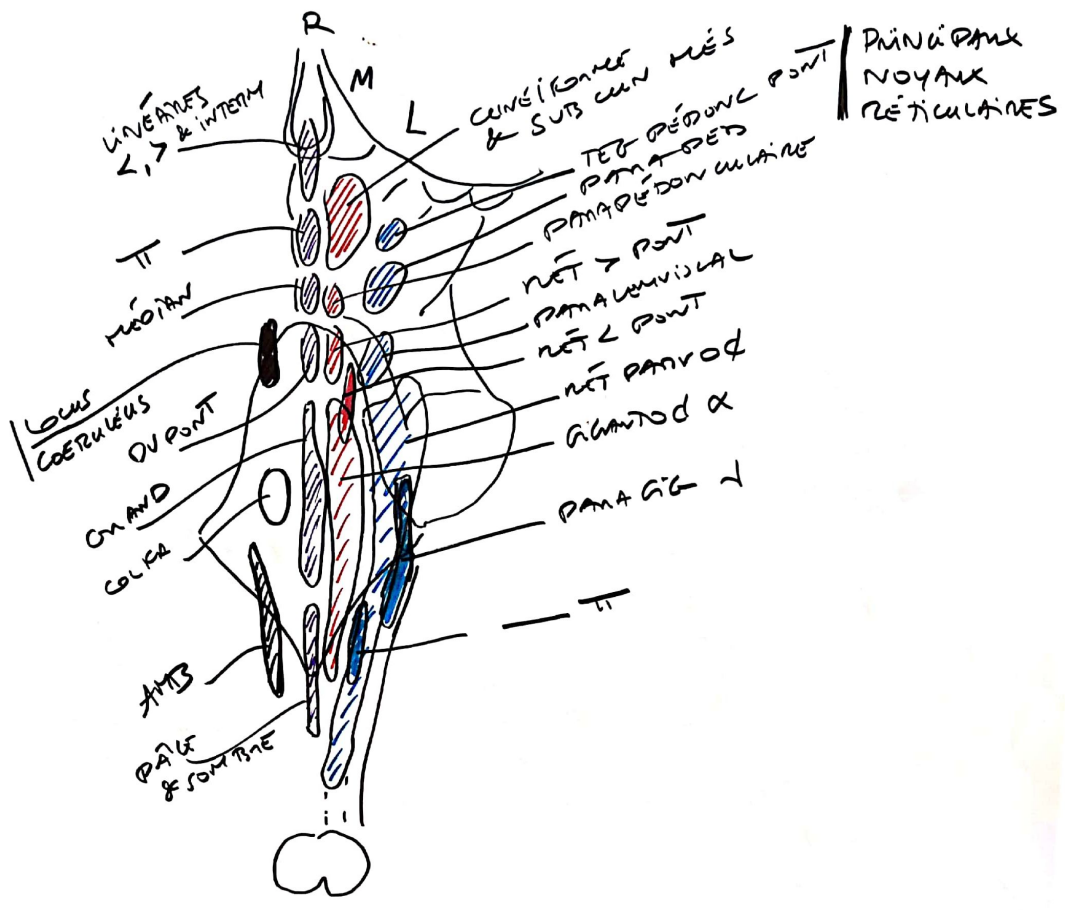 R
M
L
PRINCIPAUX
NOYAUX
RÉTICULAIRES
LINÉAIRES
<, > & INTERM
CUNÉIFORME
& SUB CUN MÉS
TEG PÉDONC PONT
PARA PED
PARAPÉDONCULAIRE
RÉT > PONT
PARALEMNISCAL
RÉT < PONT
RÉT PARVO
GIGANTO α
PARA GIG
MÉDIAN
LOCUS
COERULÉUS
DU PONT
GRAND
AMB
PÂLE
& SOMBRE